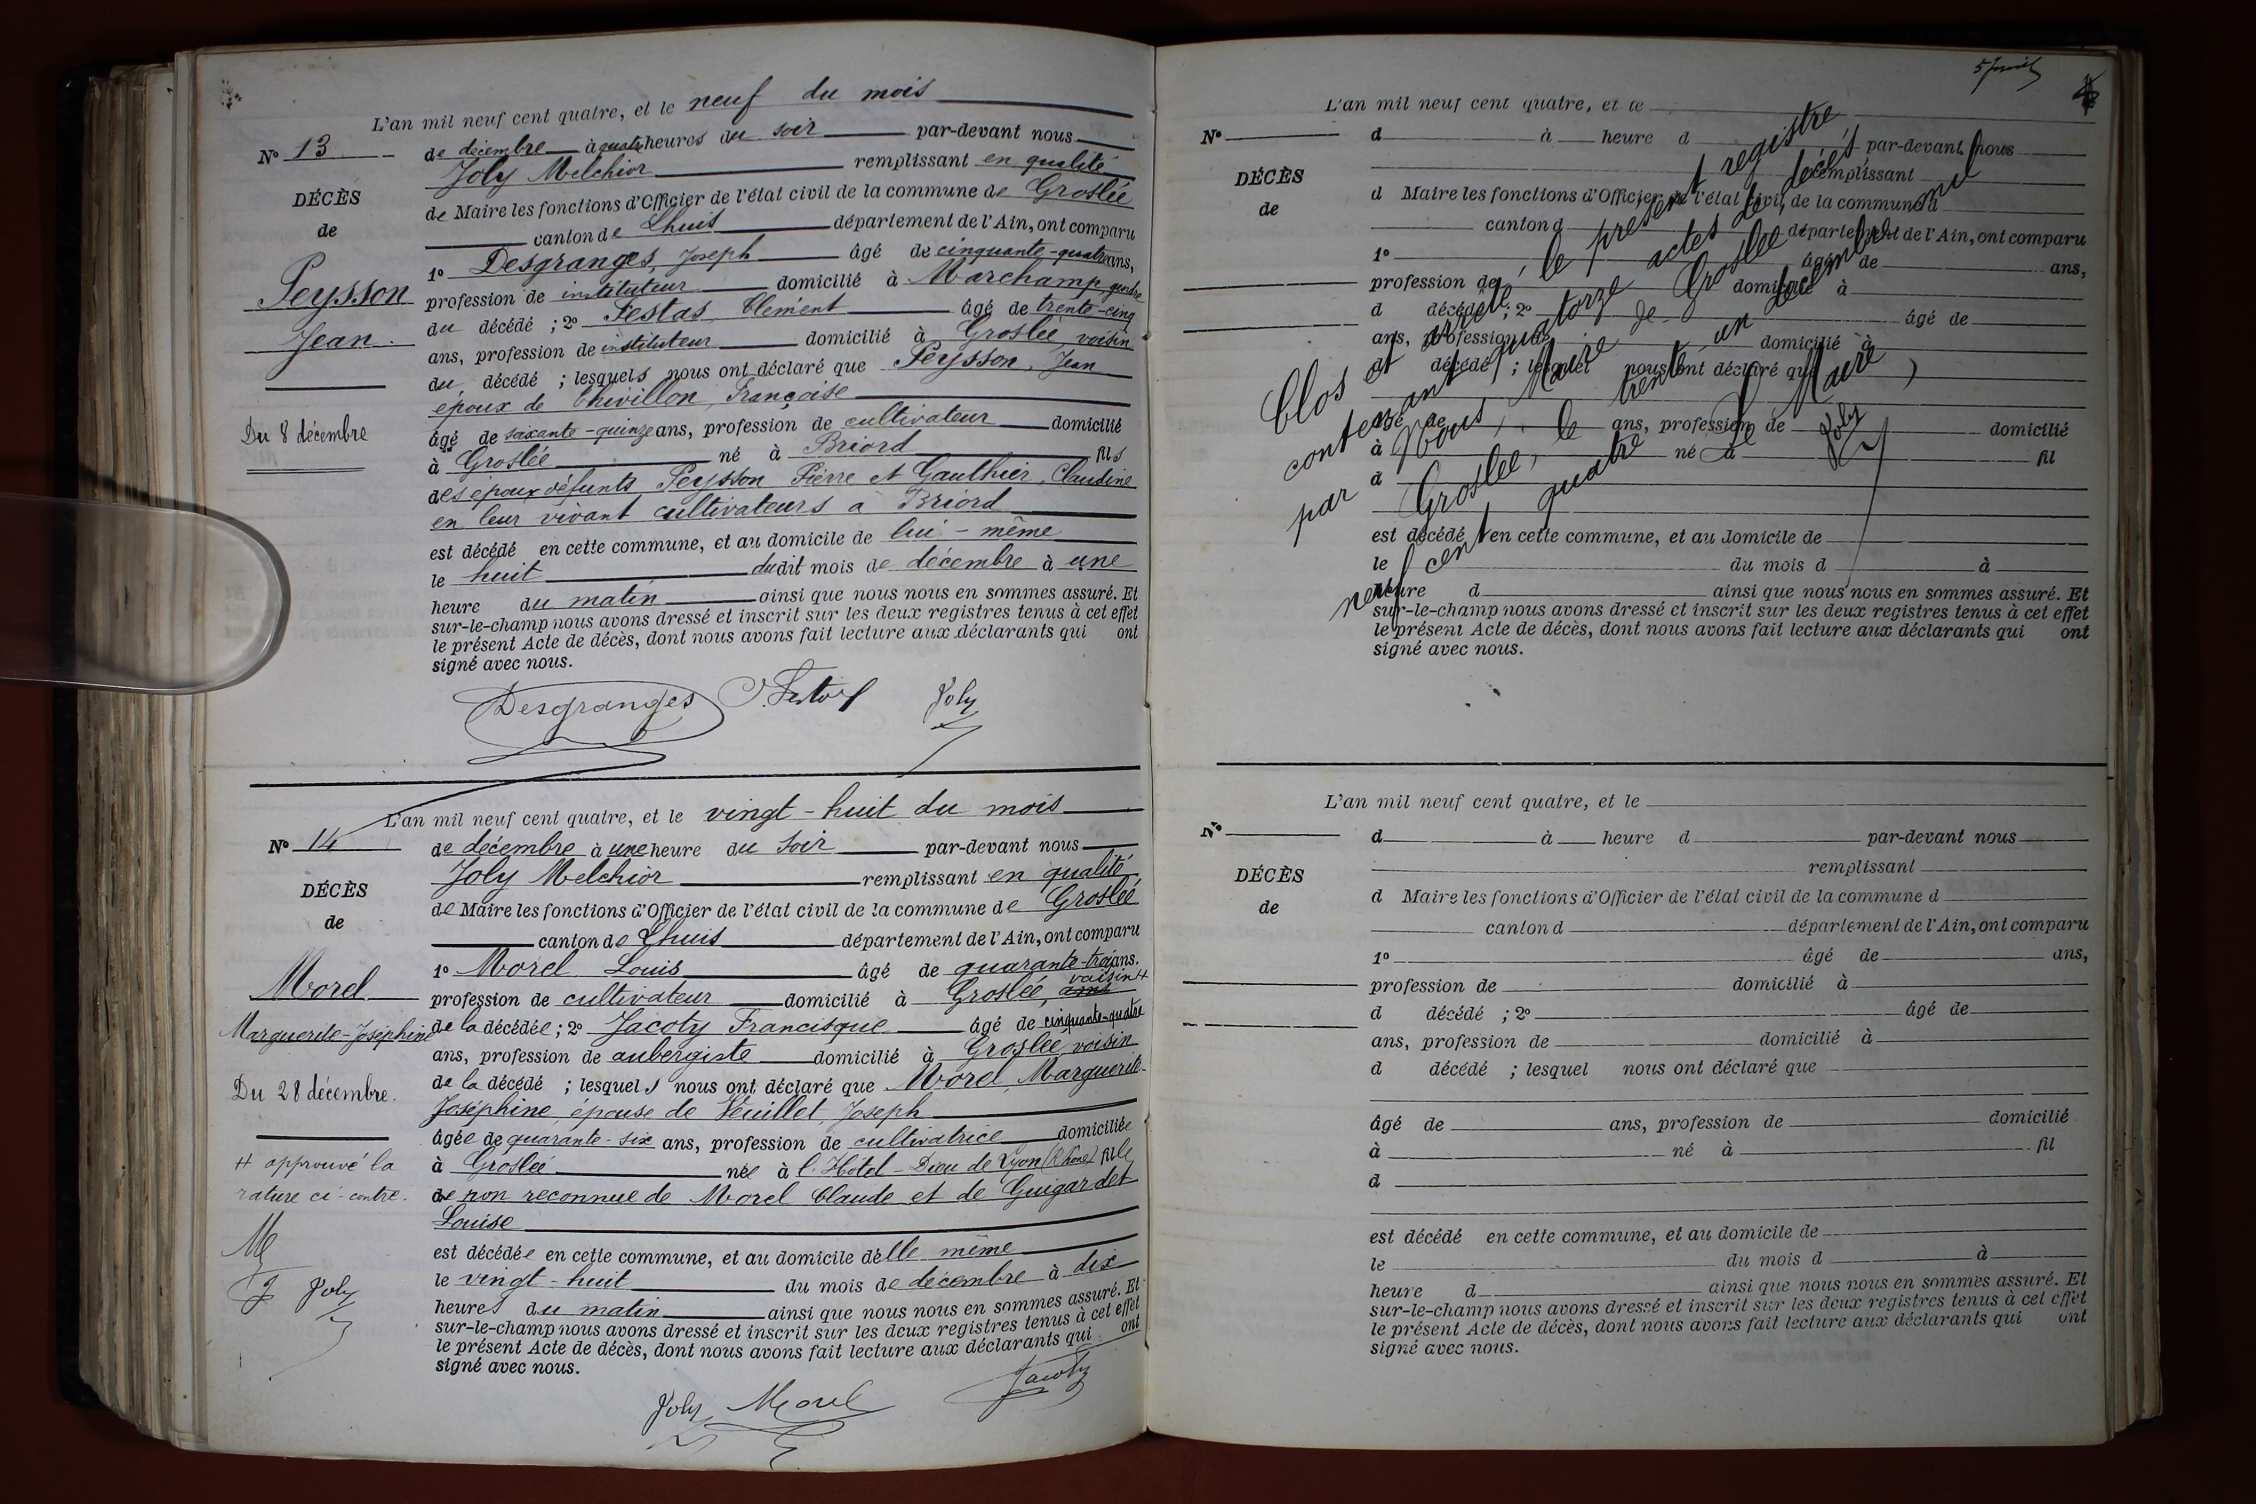 L'an mil neuf cent quatre, et le neuf du mois
N° 13
de décembre à quatre heures du soir par-devant nous
Joly Melchior remplissant en qualité
DÉCÈS
de Maire les fonctions d'Officier de l'état civil de la commune de Groslée
de
canton de Lhuis département de l'Ain, ont comparu
1° Desgranges, Joseph âgé de cinquante-quatre ans,
Peysson
profession de instituteur domicilié à Marchamp gendre
du décédé ; 2° Festas Clément âgé de trente-cinq
Jean.
ans, profession de instituteur domicilié à Groslée, voisin
du décédé ; lesquels nous ont déclaré que Peysson, Jean
époux de Chivillon, Françoise
Du 8 décembre
âgé de soixante-quinze ans, profession de cultivateur domicilié
à Groslée né à Briord fils
des époux défunts Peysson Pierre et Gauthier, Claudine
en leur vivant cultivateurs à Briord
est décédé en cette commune, et au domicile de lui-même
le huit dudit mois de décembre à une
heure du matin ainsi que nous nous en sommes assuré. Et
sur-le-champ nous avons dressé et inscrit sur les deux registres tenus à cet effet
le présent Acte de décès, dont nous avons fait lecture aux déclarants qui ont
signé avec nous.
Desgranges Joly
L'an mil neuf cent quatre, et le vingt-huit du mois
N° 14
de décembre à une heure du soir par-devant nous
Joly Melchior remplissant en qualité
DÉCÈS
de Maire les fonctions d'Officier de l'état civil de la commune de Groslée
de
canton de Lhuis département de l'Ain, ont comparu
1° Morel Louis âgé de quarante-trois ans.
voisin
Morel
profession de cultivateur domicilié à Groslée,
Marguerite-Joséphine
de la décédée ; 2° Jacoty Francisque âgé de cinquante-quatre
ans, profession de aubergiste domicilié à Groslée, voisin
de la décédé ; lesquels nous ont déclaré que Morel Marguerite-
Du 28 décembre.
Joséphine, épouse de Veuillet, Joseph
âgée de quarante-six ans, profession de cultivatrice domiciliée
# approuvé la
à Groslée née à l'Hôtel-Dieu de Lyon (Rhône) fille
rature ci-contre.
de non reconnue de Morel Claude et de Guigardet
Louise
est décédée en cette commune, et au domicile d'elle même
le vingt-huit du mois de décembre à dix
Joly
heures du matin ainsi que nous nous en sommes assuré. Et
sur-le-champ nous avons dressé et inscrit sur les deux registres tenus à cet effet
le présent Acte de décès, dont nous avons fait lecture aux déclarants qui ont
signé avec nous.
Joly Morel Jacoty
L'an mil neuf cent quatre, et le
N°
d à heure d par-devant nous
remplissant
DÉCÈS
d Maire les fonctions d'Officier de l'état civil de la commune d
de
canton d département de l'Ain, ont comparu
1° âgé de ans,
profession de domicilié à
d décédé ; 2° âgé de
ans, profession de domicilié à
d décédé ; lesquel nous ont déclaré que
âgé de ans, profession de domicilié
à né à fil
d
est décédé en cette commune, et au domicile de
le du mois d à
heure d ainsi que nous nous en sommes assuré. Et
sur-le-champ nous avons dressé et inscrit sur les deux registres tenus à cet effet
le présent Acte de décès, dont nous avons fait lecture aux déclarants qui ont
signé avec nous.
Clos et arrêté, le présent registre
contenant quatorze actes de décès
par Nous, Maire de Groslée
Groslée, le trente un décembre mil
neuf cent quatre
Le Maire,
Joly
L'an mil neuf cent quatre, et le
N°
d à heure d par-devant nous
remplissant
DÉCÈS
d Maire les fonctions d'Officier de l'état civil de la commune d
de
canton d département de l'Ain, ont comparu
1° âgé de ans,
profession de domicilié à
d décédé ; 2° âgé de
ans, profession de domicilié à
d décédé ; lesquel nous ont déclaré que
âgé de ans, profession de domicilié
à né à fil
d
est décédé en cette commune, et au domicile de
le du mois d à
heure d ainsi que nous nous en sommes assuré. Et
sur-le-champ nous avons dressé et inscrit sur les deux registres tenus à cet effet
le présent Acte de décès, dont nous avons fait lecture aux déclarants qui ont
signé avec nous.